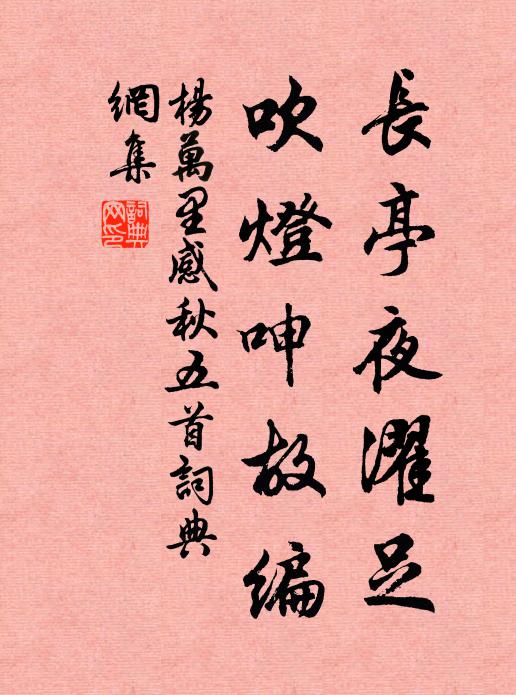 長亭夜濯足
吹燈呻故編
楊萬里感秋五首詞典
網集
詞典
网印